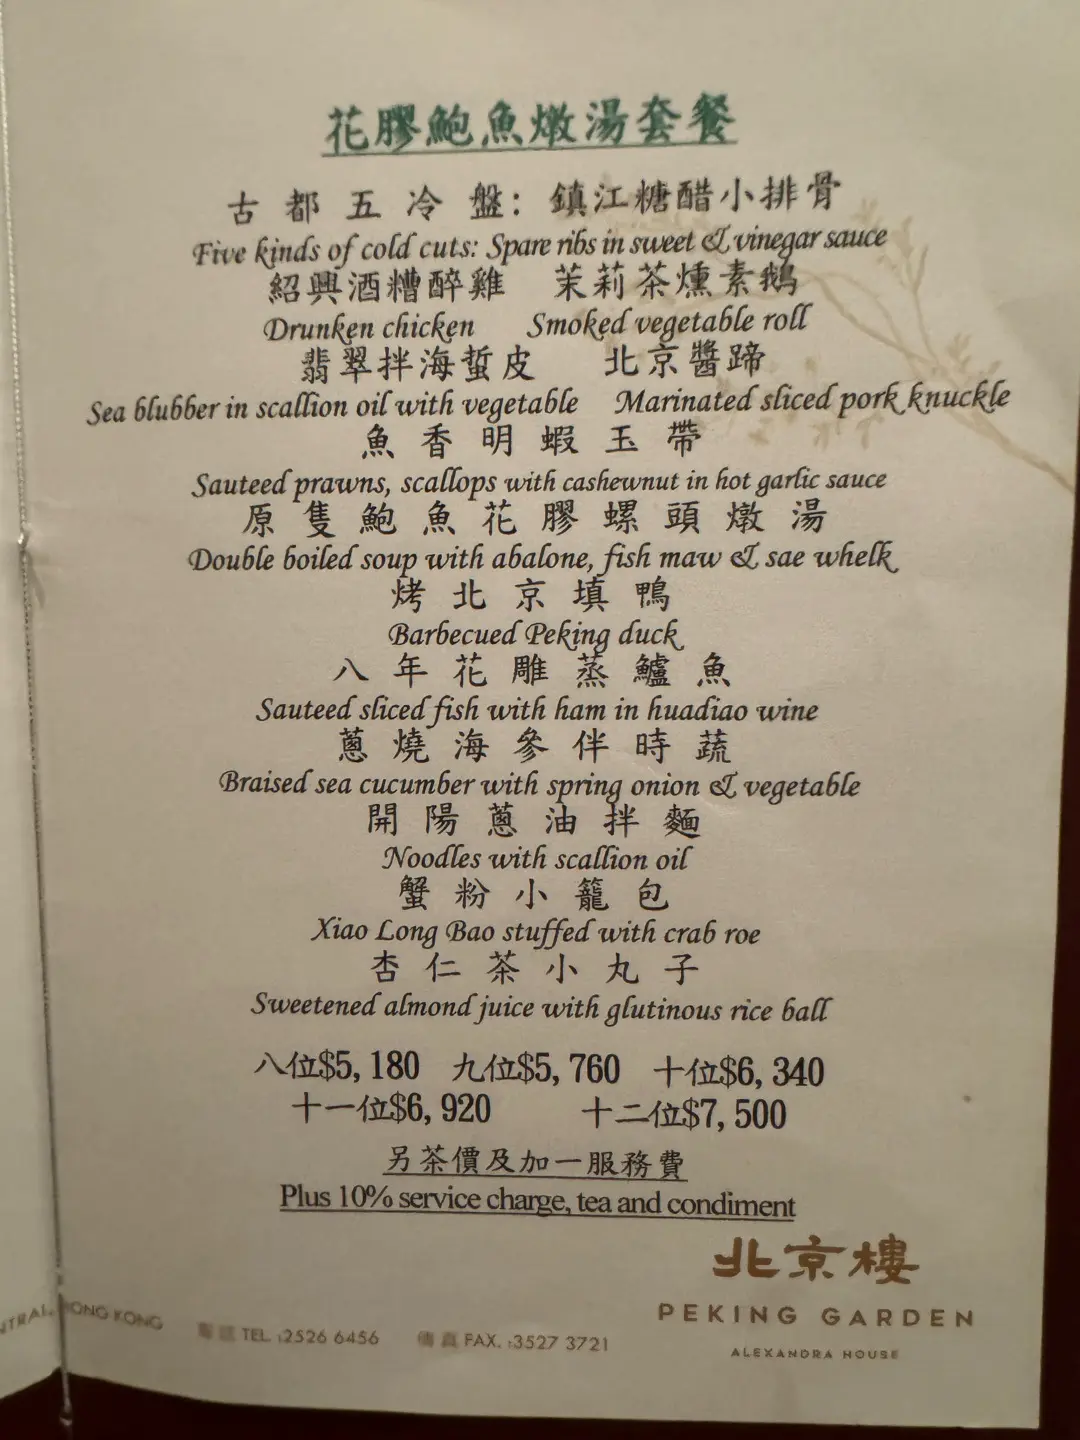 花膠鮑魚燉湯套餐
古都五冷盤：鎮江糖醋小排骨
Five kinds of cold cuts: Spare ribs in sweet & vinegar sauce
紹興酒糟醉雞 茉莉茶燻素鵝
Drunken chicken Smoked vegetable roll
翡翠拌海蜇皮 北京醬蹄
Sea blubber in scallion oil with vegetable Marinated sliced pork knuckle
魚香明蝦玉帶
Sauteed prawns, scallops with cashewnut in hot garlic sauce
原隻鮑魚花膠螺頭燉湯
Double boiled soup with abalone, fish maw & sae whelk
烤北京填鴨
Barbecued Peking duck
八年花雕蒸鱸魚
Sauteed sliced fish with ham in huadiao wine
蔥燒海參伴時蔬
Braised sea cucumber with spring onion & vegetable
開陽蔥油拌麵
Noodles with scallion oil
蟹粉小籠包
Xiao Long Bao stuffed with crab roe
杏仁茶小丸子
Sweetened almond juice with glutinous rice ball
八位$5,180 九位$5,760 十位$6,340
十一位$6,920 十二位$7,500
另茶價及加一服務費
Plus 10% service charge, tea and condiment
北京樓
PEKING GARDEN
ALEXANDRA HOUSE
HONG KONG
電話 TEL. :2526 6456 傳真 FAX. :3527 3721